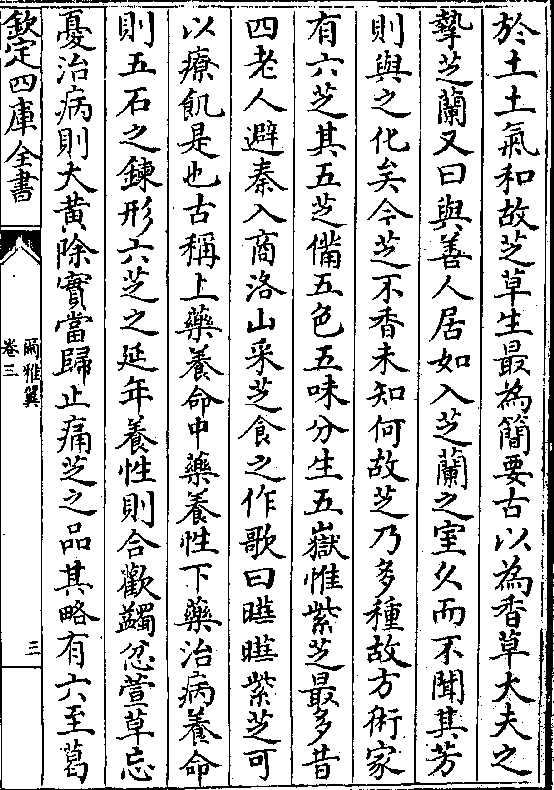 於土土氣和故芝草生最為簡要古以為香草大夫之
摯芝蘭又曰與善人居如入芝蘭之室久而不聞其芳
則與之化矣今芝不香未知何故芝乃多種故方術家
有六芝其五芝備五色五味分生五嶽惟紫芝最多昔
四老人避秦入商洛山采芝食之作歌曰曄曄紫芝可
以療飢是也古稱上藥養命中藥養性下藥治病養命
則五石之鍊形六芝之延年養性則合歡蠲忿萱草忘
憂治病則大黃除實當歸止痛芝之品其略有六至葛
欽定四庫全書
爾雅翼
卷三
三